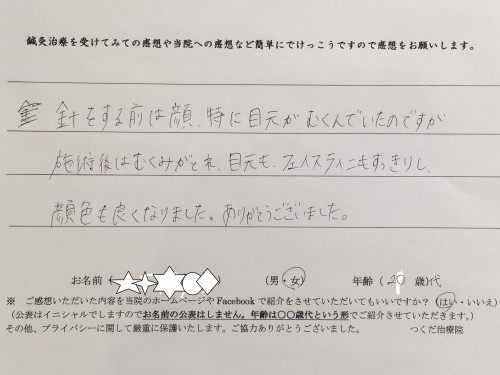 鍼灸治療を受けてみての感想や当院への感想など簡単にでけっこうですので感想をお願いします。
針をする前は顔、特に目元がむくんでいたのですが
施術後はむくみがとれ、目元も、フェイスラインもすっきりし、
顔色も良くなりました。ありがとうございました。
お名前( ) (男・女) 年齢 ( 20 歳)代
※ ご感想いただいた内容を当院のホームページやFacebookで紹介をさせていただいてもいいですか?(はい・いいえ)
(公表はイニシャルでしますのでお名前の公表はしません。年齢は〇〇歳代という形でご紹介させていただきます。)
その他、プライバシーに関して厳重に保護いたします。ご協力ありがとうございました。 つくだ治療院